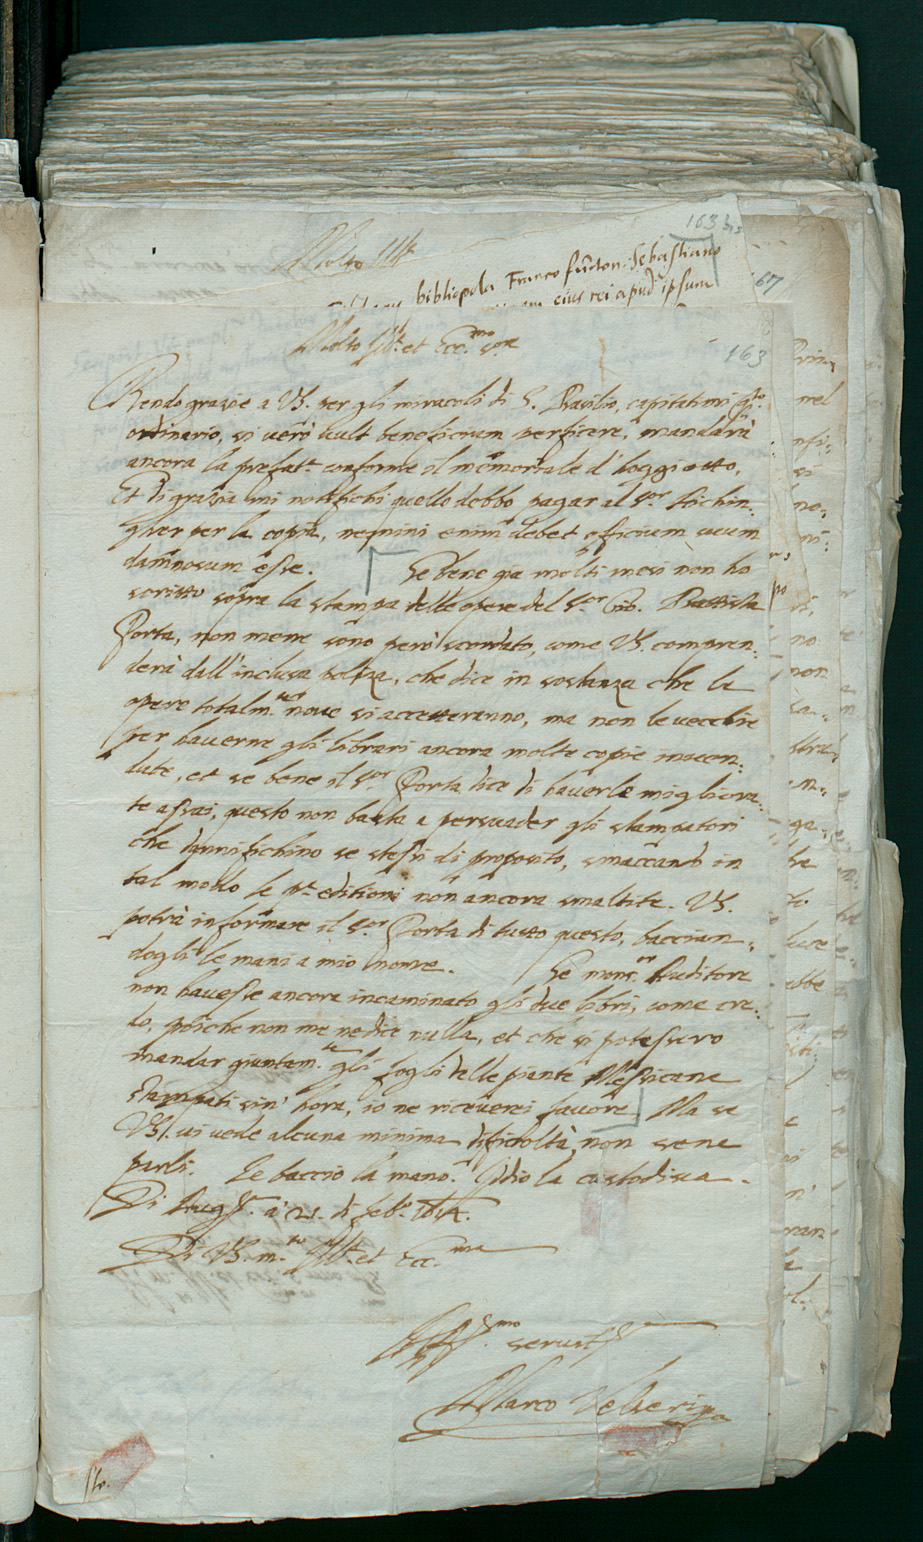 163 bis
Molto Ill.
bibliopola Francofurton. Sebastiano
eius rei apud ipsum
67
Molto Ill.e et Ecc.mo s.or
163
Rendo grazie a VS. per gli miracoli di S. Basilio, capitatimi q.to
ordinario, si verò vult beneficium perficere, mandarà
ancora la prefatt.e conforme il memoriale d' hoggi otto,
Et di grazia mi notifichi quello debbo pagar al s.or Fichin:
gher per la copia, nemini enim debet officium suum
damnosum esse. Se bene già molti mesi non ho
scritto sopra la stampa delle opere del s.or Gio. Battista
Porta, non mene sono però scordato, come VS. compren:
derà dall' inclusa polizza, che dice in sostanza che le
opere totalm.te nove si accetteranno, ma non le vecchie
per haverne gli librari ancora molte copie inven:
dute, et se bene il s.or Porta dice di haverle migliora:
te assai, questo non basta a persuader gli stampatori
che dannifichino se stessi di proposito, smaccando in
tal modo le p.e editioni non ancora smaltite. VS.
potrà informare il s.or Porta di tutto questo, bacian:
dogli le mani a mio nome. Se mons.or Auditore
non havesse ancora incaminato gli due libri, come cre:
do, poiche non me ne dice nulla, et che si potessero
mandar giuntam.te gli fogli delle piante Messicane
stampati sin' hora, io ne riceverei favore. Ma se
VS. vi vede alcuna minima difficoltà, non sene
parli. Le baccio la mano. Iddio la custodisca.
Di Aug.ta a' 21. di feb.o 1614.
Di VS. m.to Ill.e et Ecc.ma
Aff.mo servit.re
Marco Velseri